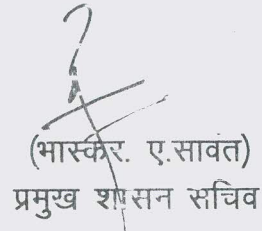 (भास्कर. ए.सावंत)
प्रमुख शासन सचिव